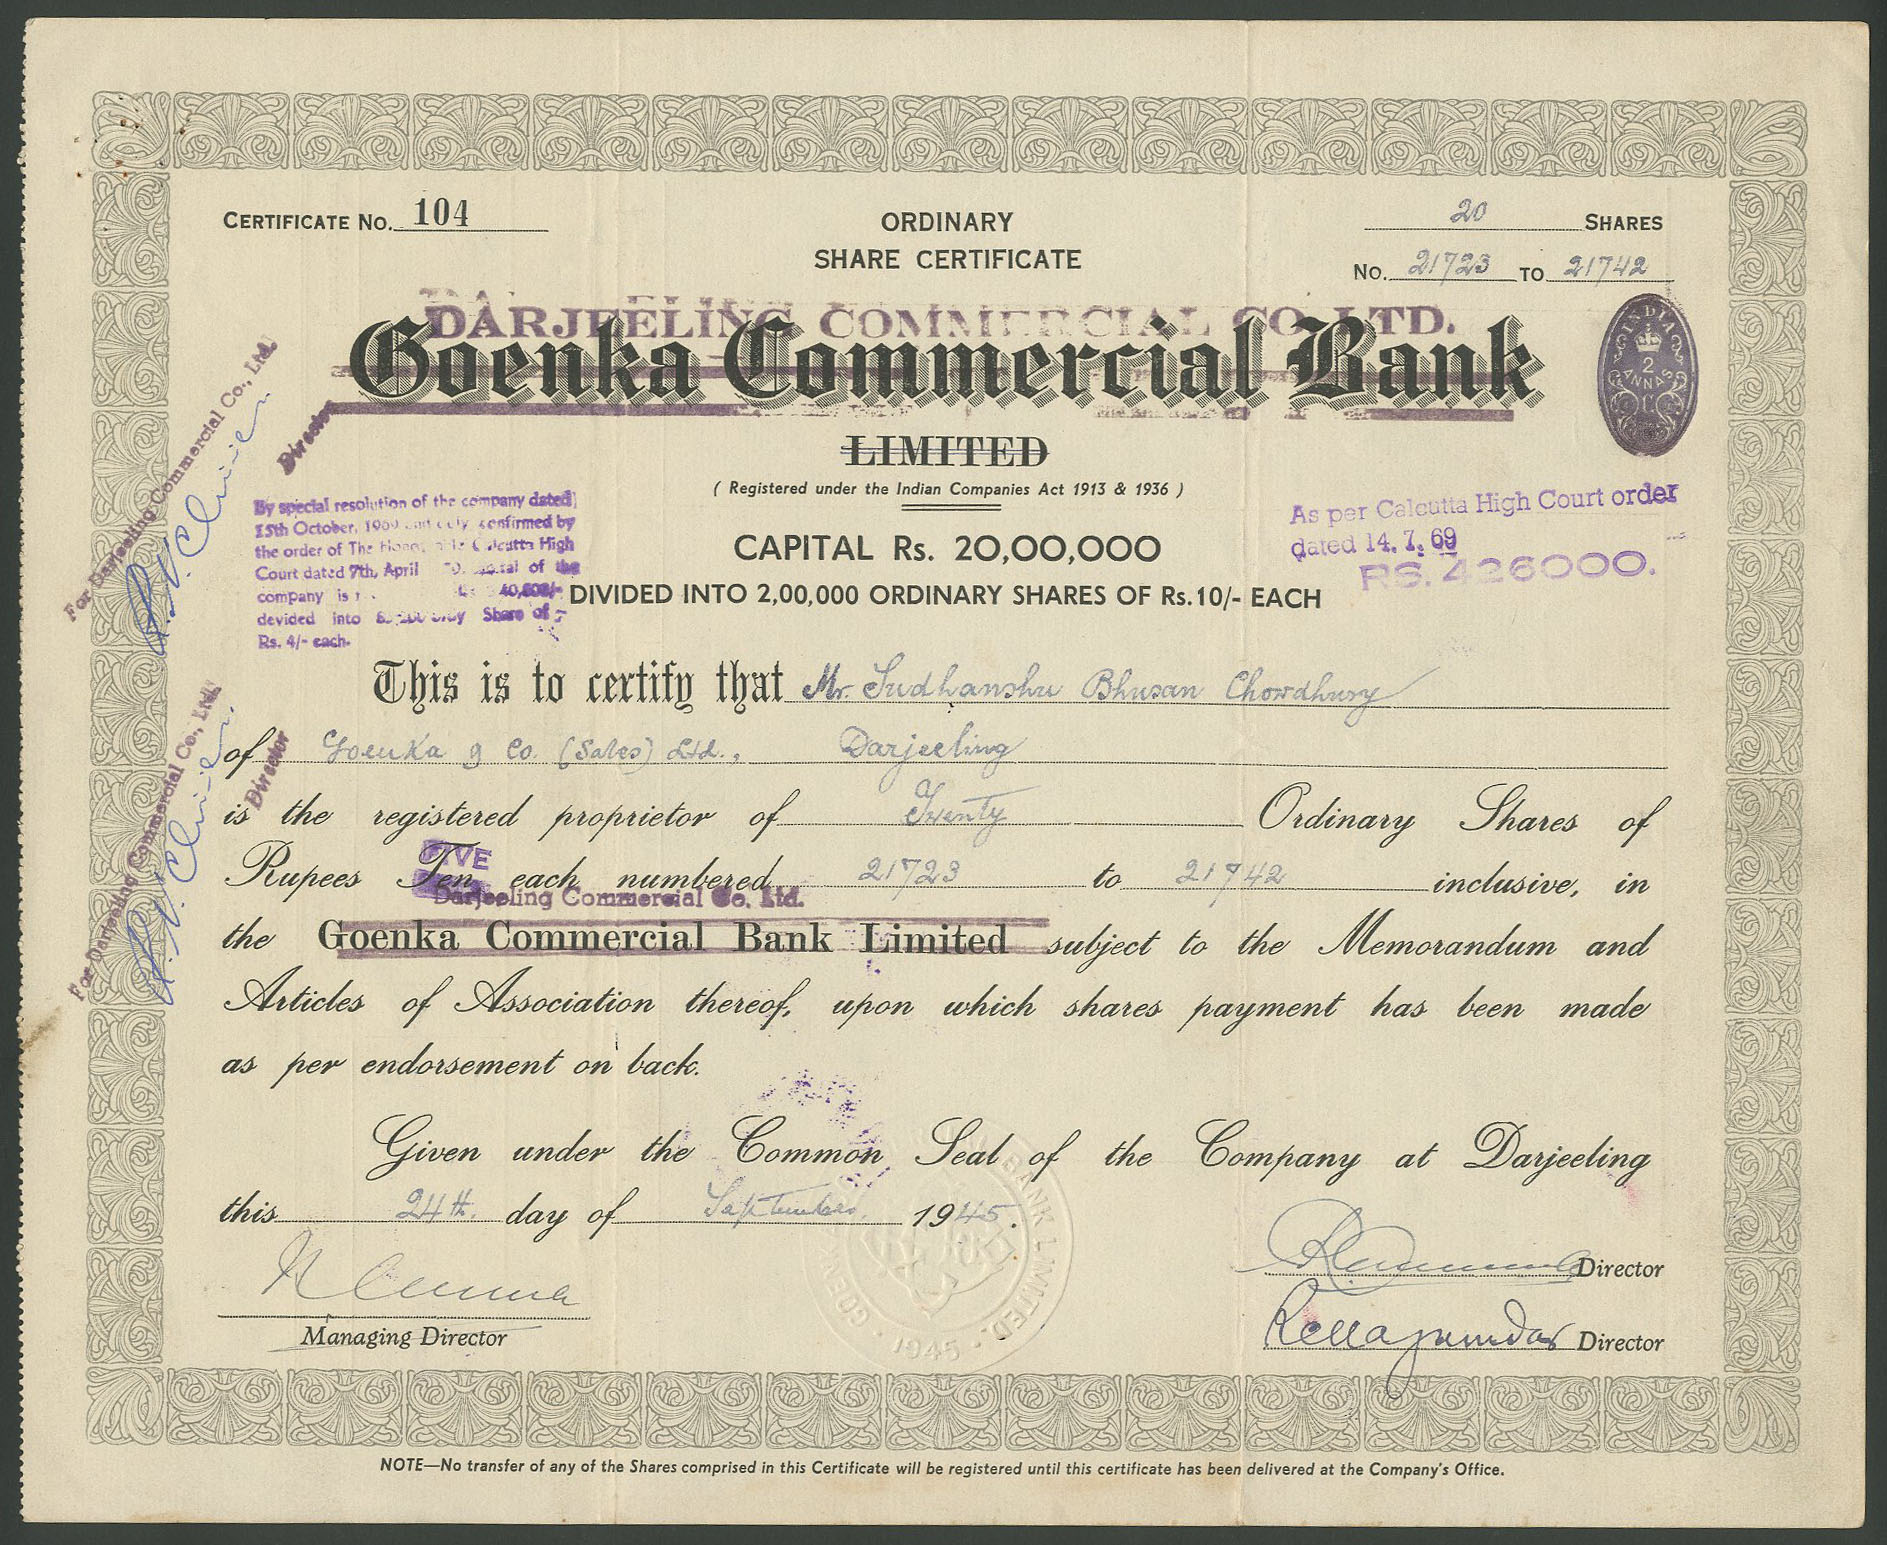 CERTIFICATE No. 104
ORDINARY
SHARE CERTIFICATE
20 SHARES
No. 21723 TO 21742
DARJEELING COMMERCIAL CO. LTD.
Goenka Commercial Bank
LIMITED
( Registered under the Indian Companies Act 1913 & 1936 )
INDIA
2
ANNAS
For Darjeeling Commercial Co., Ltd.
Director
By special resolution of the company dated
15th October, 1969 and duly confirmed by
the order of The Calcutta High
Court dated 7th, April of the
company is 40,800/-
devided into Share of
Rs. 4/- each.
As per Calcutta High Court order
dated 14.7.69
RS. 426000.
CAPITAL Rs. 20,00,000
DIVIDED INTO 2,00,000 ORDINARY SHARES OF Rs.10/- EACH
This is to certify that Mr. Sudhanshu Bhusan Chowdhury
of Goenka & Co. (Sales) Ltd., Darjeeling
is the registered proprietor of Twenty Ordinary Shares of
FIVE
Rupees Ten each numbered 21723 to 21742 inclusive, in
Darjeeling Commercial Co. Ltd.
the Goenka Commercial Bank Limited subject to the Memorandum and
Articles of Association thereof, upon which shares payment has been made
as per endorsement on back.
For Darjeeling Commercial Co., Ltd.
Director
Given under the Common Seal of the Company at Darjeeling
this 24th. day of September. 1945.
GOENKA BANK LIMITED.
1945
Managing Director
Director
Director
NOTE—No transfer of any of the Shares comprised in this Certificate will be registered until this certificate has been delivered at the Company's Office.